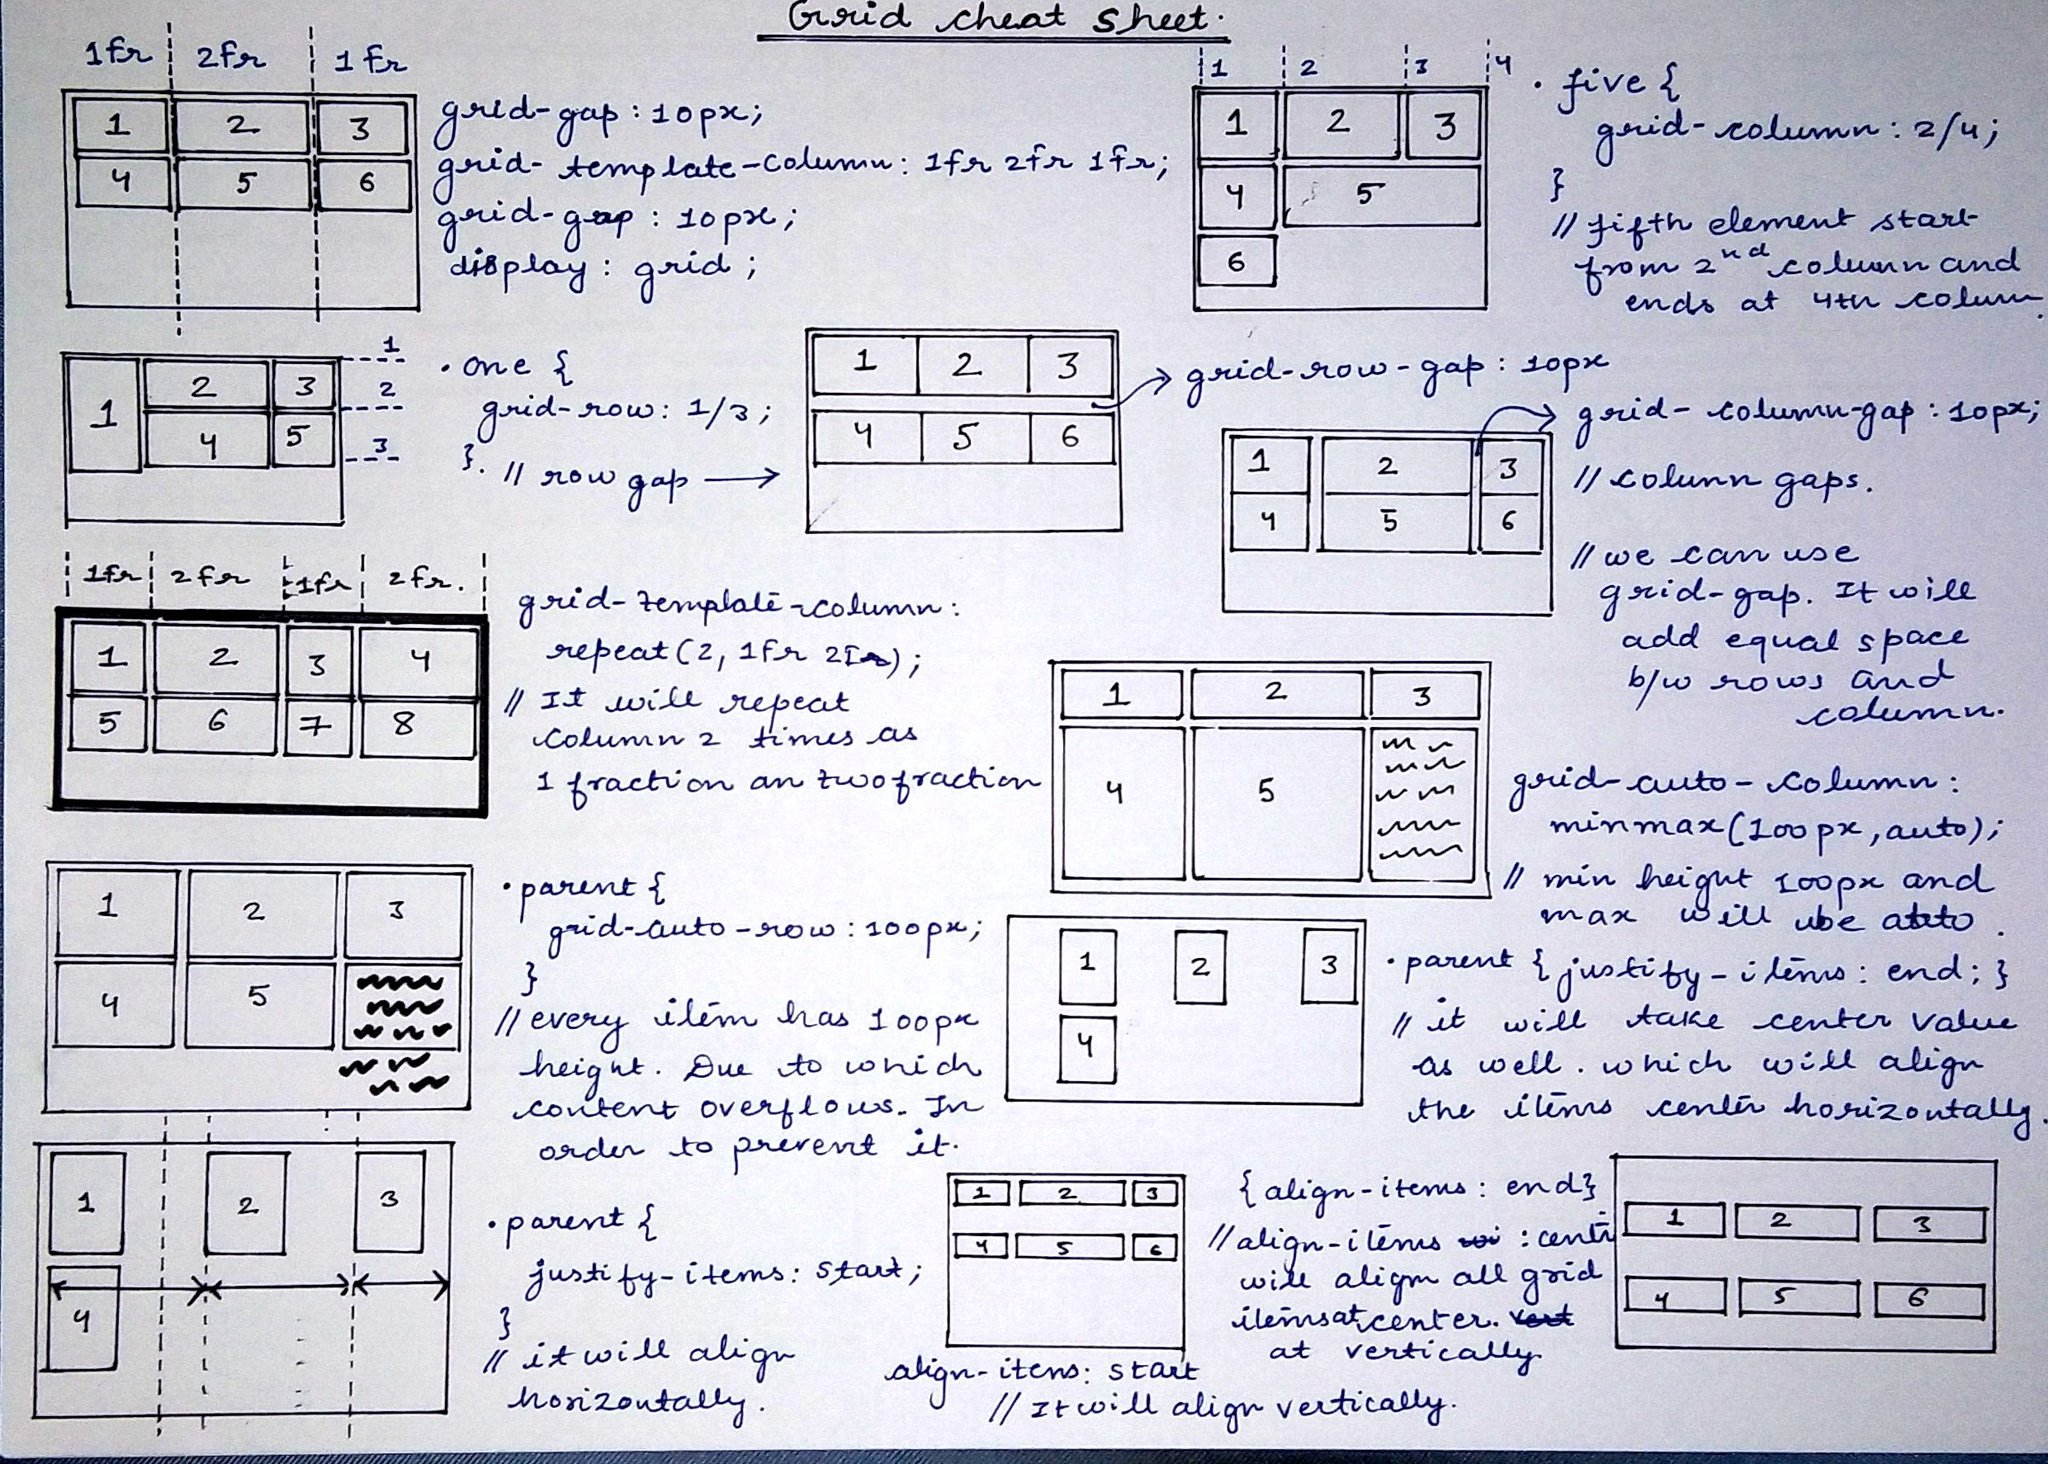 Grid cheat sheet.
1fr 2fr 1fr
1 2 3
4 5 6
grid-gap: 10px;
grid-template-column: 1fr 2fr 1fr;
grid-gap: 10px;
display: grid;
1 2 3 4
1 2 3
4 5
6
.five {
grid-column: 2/4;
}
// fifth element start
from 2nd column and
ends at 4th colum.
1 2 3
4 5
1
2
3
.one {
grid-row: 1/3;
}.
// row gap →
1 2 3
4 5 6
grid-row-gap: 10px
grid-column-gap: 10px;
1 2 3
4 5 6
// column gaps.
// we can use
grid-gap. It will
add equal space
b/w rows and
column.
1fr 2fr 1fr 2fr.
1 2 3 4
5 6 7 8
grid-template-column:
repeat(2, 1fr 2fr);
// It will repeat
column 2 times as
1 fraction an two fraction
1 2 3
4 5
grid-auto-column:
minmax(100px, auto);
// min height 100px and
max will be auto.
1 2 3
4 5
.parent {
grid-auto-row: 100px;
}
// every item has 100px
height. Due to which
content overflows. In
order to prevent it.
1 2 3
4
.parent { justify-items: end; }
// it will take center value
as well. which will align
the items center horizontally.
1 2 3
4
.parent {
justify-items: start;
}
// it will align
horizontally.
1 2 3
4 5 6
align-items: start
// It will align vertically.
{align-items: end}
// align-items : cente
will align all grid
items at center.
at vertically
1 2 3
4 5 6